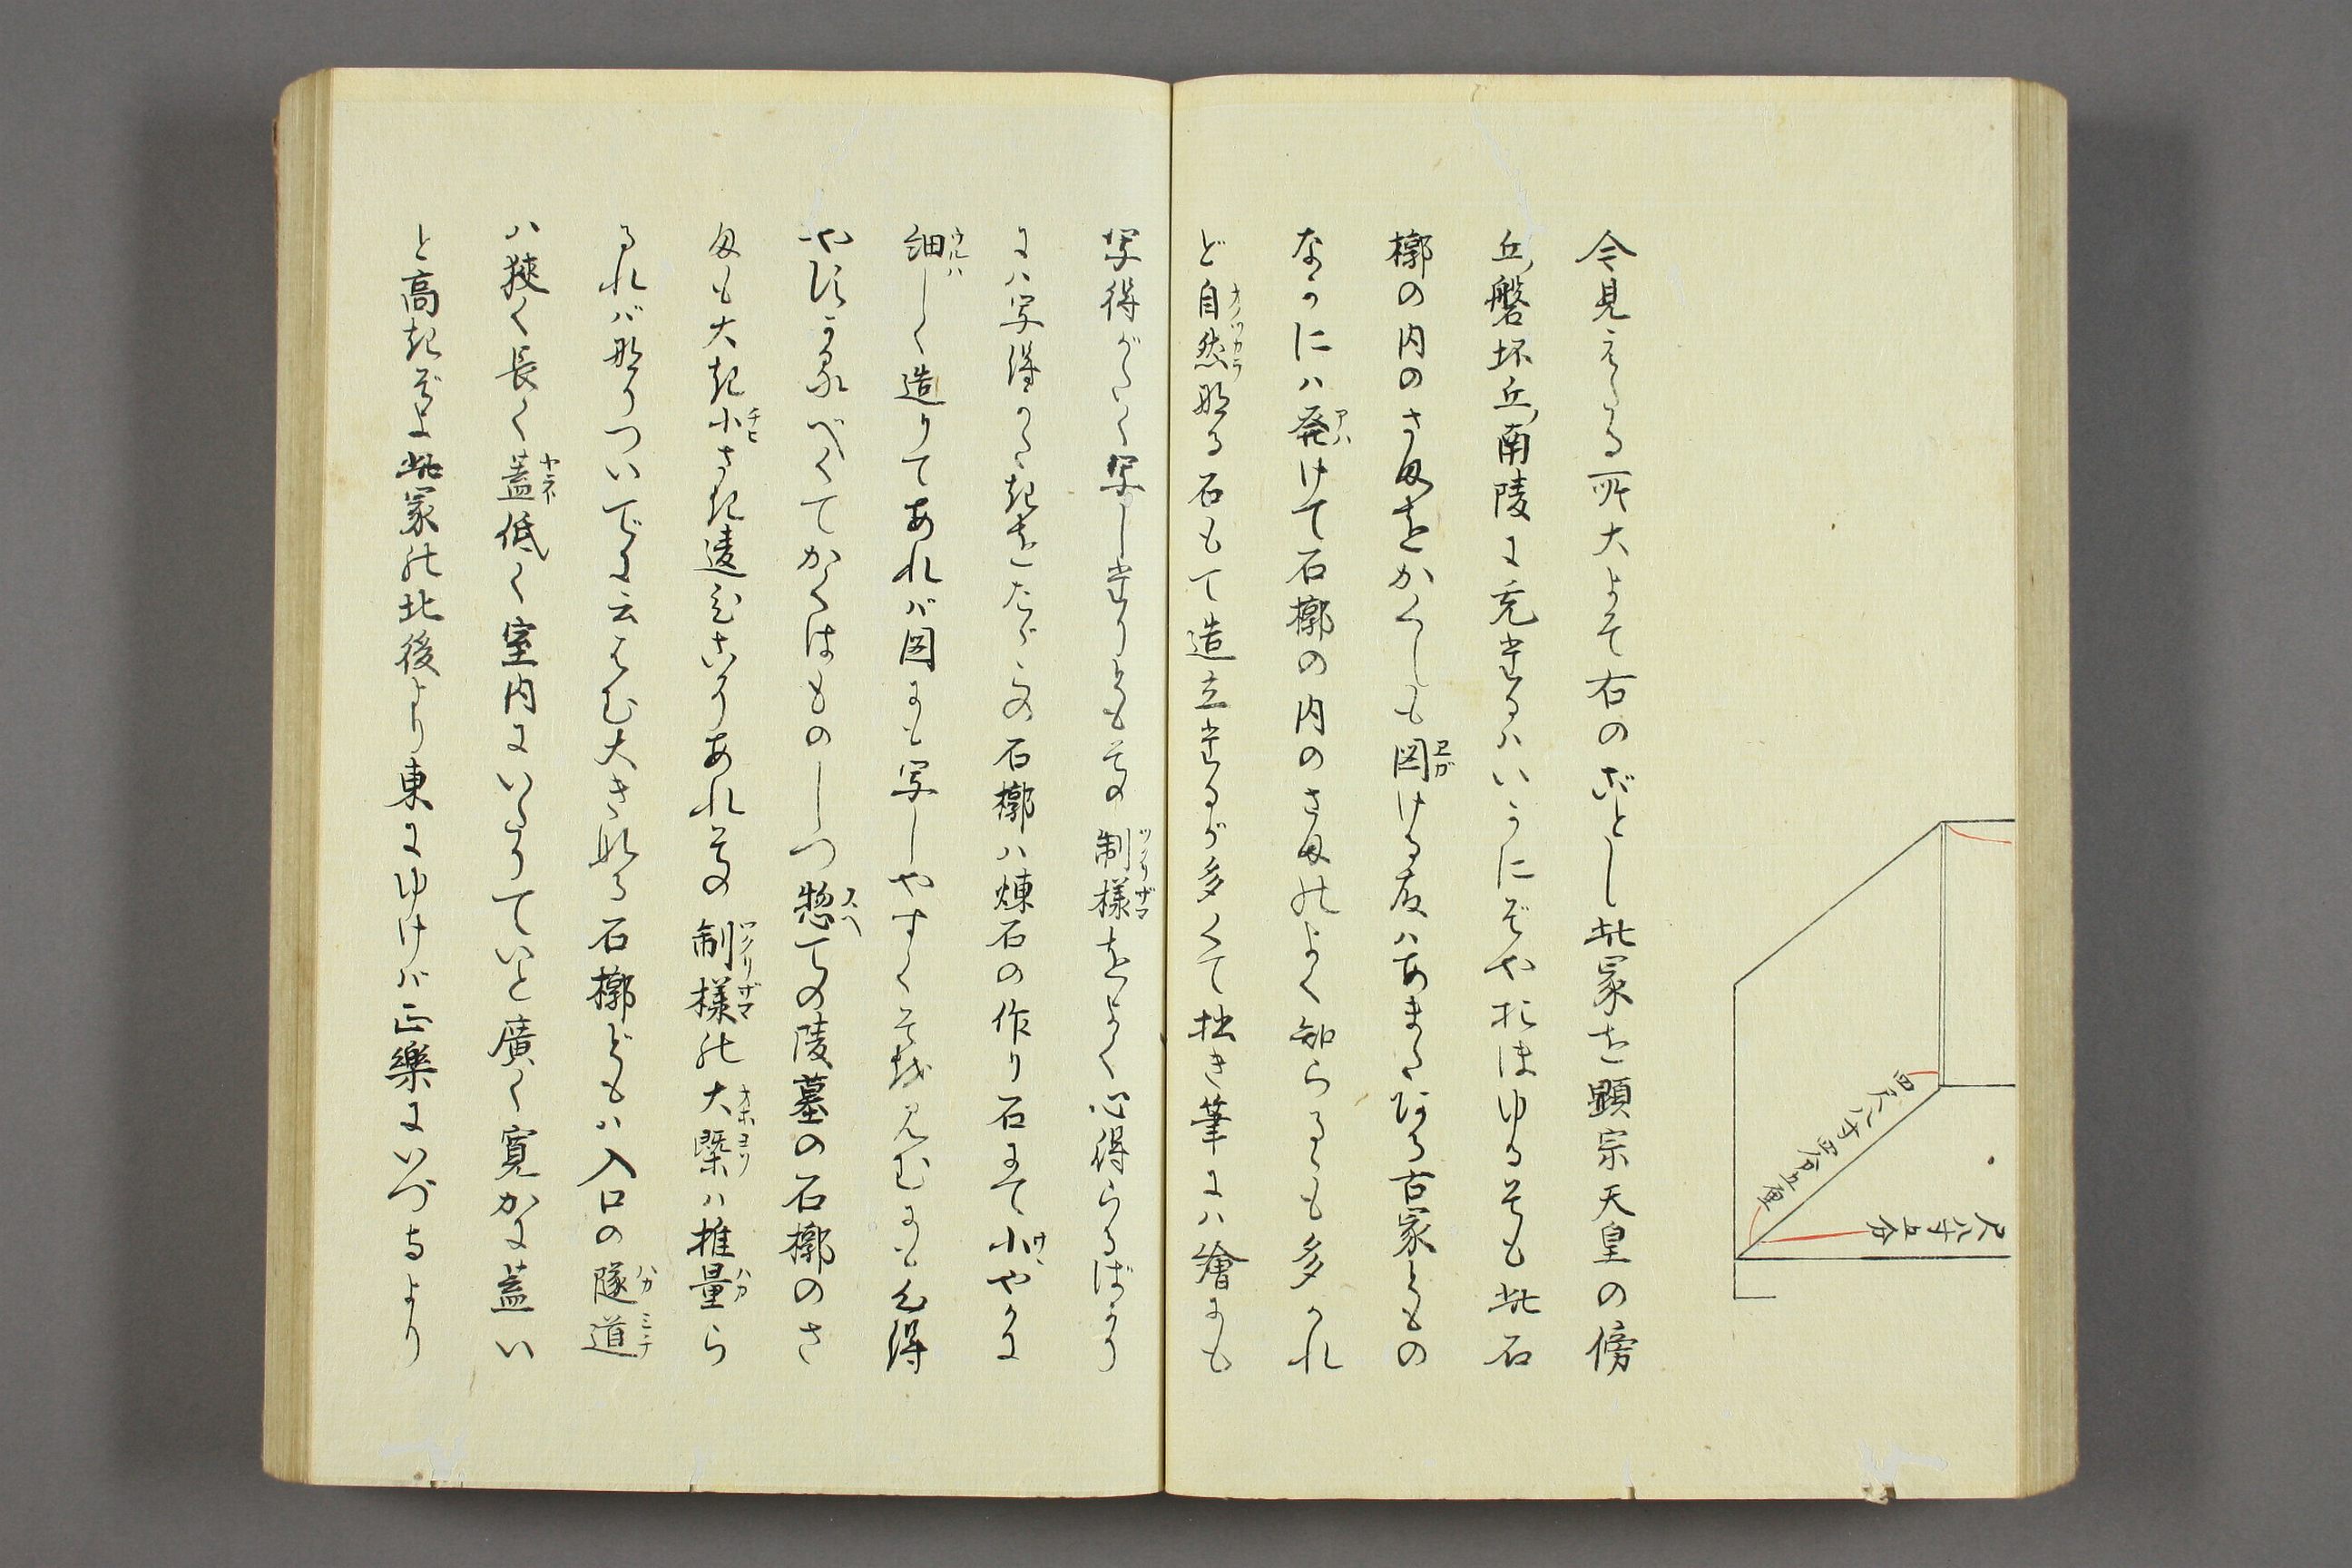 四尺八寸四分五厘
尺八寸五分
今見えたる所大よそ右のごとし此冢を顕宗天皇の傍
丘磐坏丘南陵に充奉るハいかにぞやおほゆるそも此石
槨の内のさまをかくしも図ける故ハあまたある古冢ともの
なかにハ発けて石槨の内のさまのよく知らるゝも多かれ
ど自然なる石もて造立奉るが多くて拙き筆にハ繪にも
写得がたく写し奉りとも其の制様をよく心得らるばかり
にハ写得かたきをたゞこの石槨ハ煉石の作り石にて小やかに
細しく造りてあれバ図にも写しやすくそを見むにも心得
やすかるべくてかくはものしつ惣ての陵墓の石槨のさ
まも大き小さき違ひこそあれ其の制様の大槩ハ推量ら
るれバなりついでに云はむ大きなる石槨どもハ入口の隧道
ハ狭く長く蓋低く室内にいたりていと廣く寛かに蓋い
と高きぞよ此冢の北後より東にゆけバ正樂にいづるより